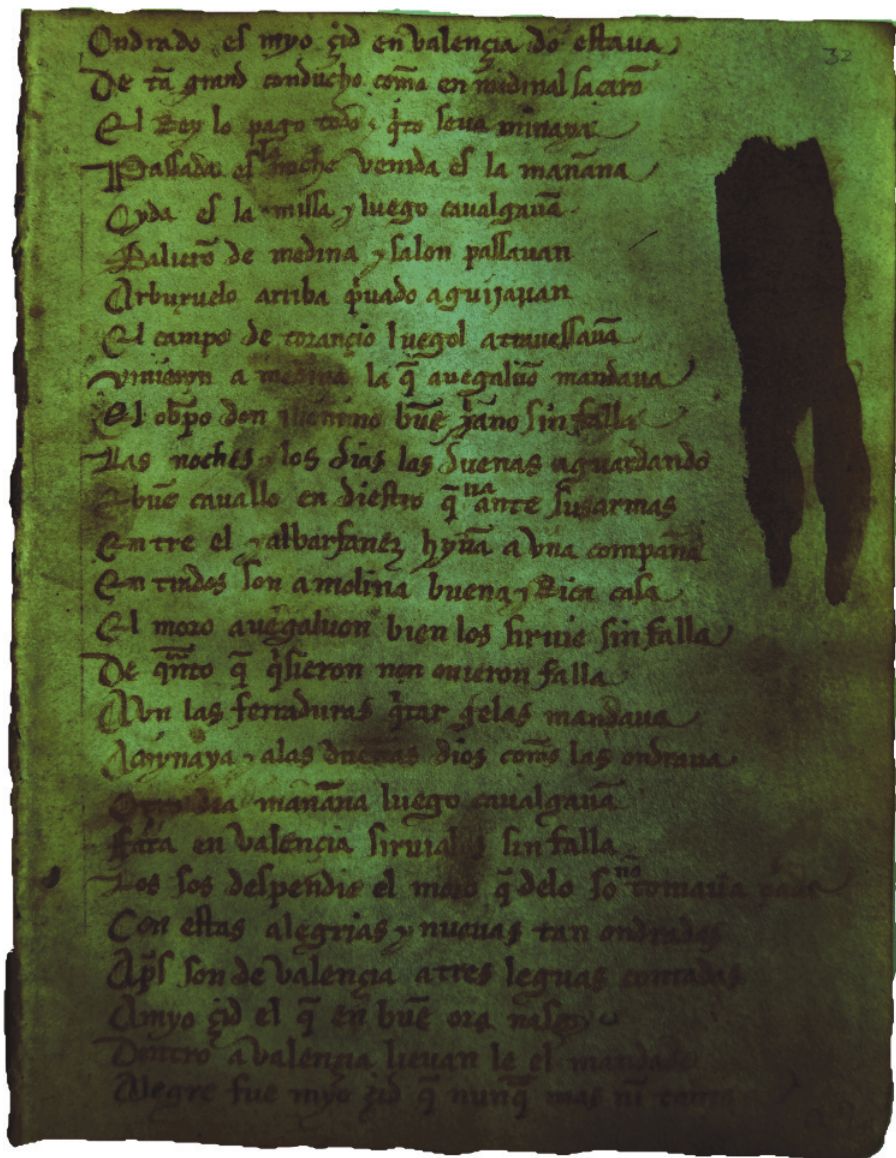 32
Ondrado es myo çid en valençia do estaua
De tã grand conducho como en medinal sacarõ
El Rey lo pago todo ⁊ q̃to seua minaya
Passada es la noche venida es la mañana
Oyda es la missa ⁊ luego caualgauã
Salierõ de medina ⁊ salon passauan
Arbuxuelo arriba p̃uado aguijauan
El campo de torançio luegol atrauessauã
vinieron a medina la q̃ auegaluõ mandaua
El ob̃po don Jheronimo buẽ xp̃iano sin falla
Las noches ⁊ los dias las duenas aguardando
E buẽ cauallo en diestro q̃ ua ante sus armas
Entre el ⁊ albarfanez hyuã a vna compaña
Entrados son a molina buena ⁊ Rica casa
El moro auegaluon bien los siruie sin falla
De quãto q̃ q̃sieron non ouieron falla
Avn las ferraduras q̃tar gelas mandaua
A mynaya ⁊ alas dueñas dios commo las ondraua
Otro dia mañana luego caualgauã
Fata en valençia siruialos sin falla
Los sos despendie el moro q̃ delo so no tomaua
Con estas alegrias ⁊ nueuas tan ondradas
Ap̃s son de valençia a tres leguas contadas
A myo çid el q̃ en buẽ ora nasco
Dentro a valençia lieuan le el mandado
Alegre fue myo çid q̃ nunq̃ mas nĩ tanto